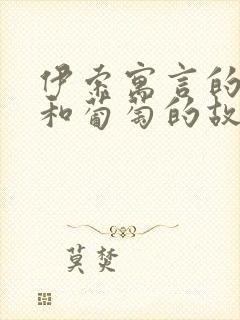 伊索寓言的
和葡萄的故
莫焚